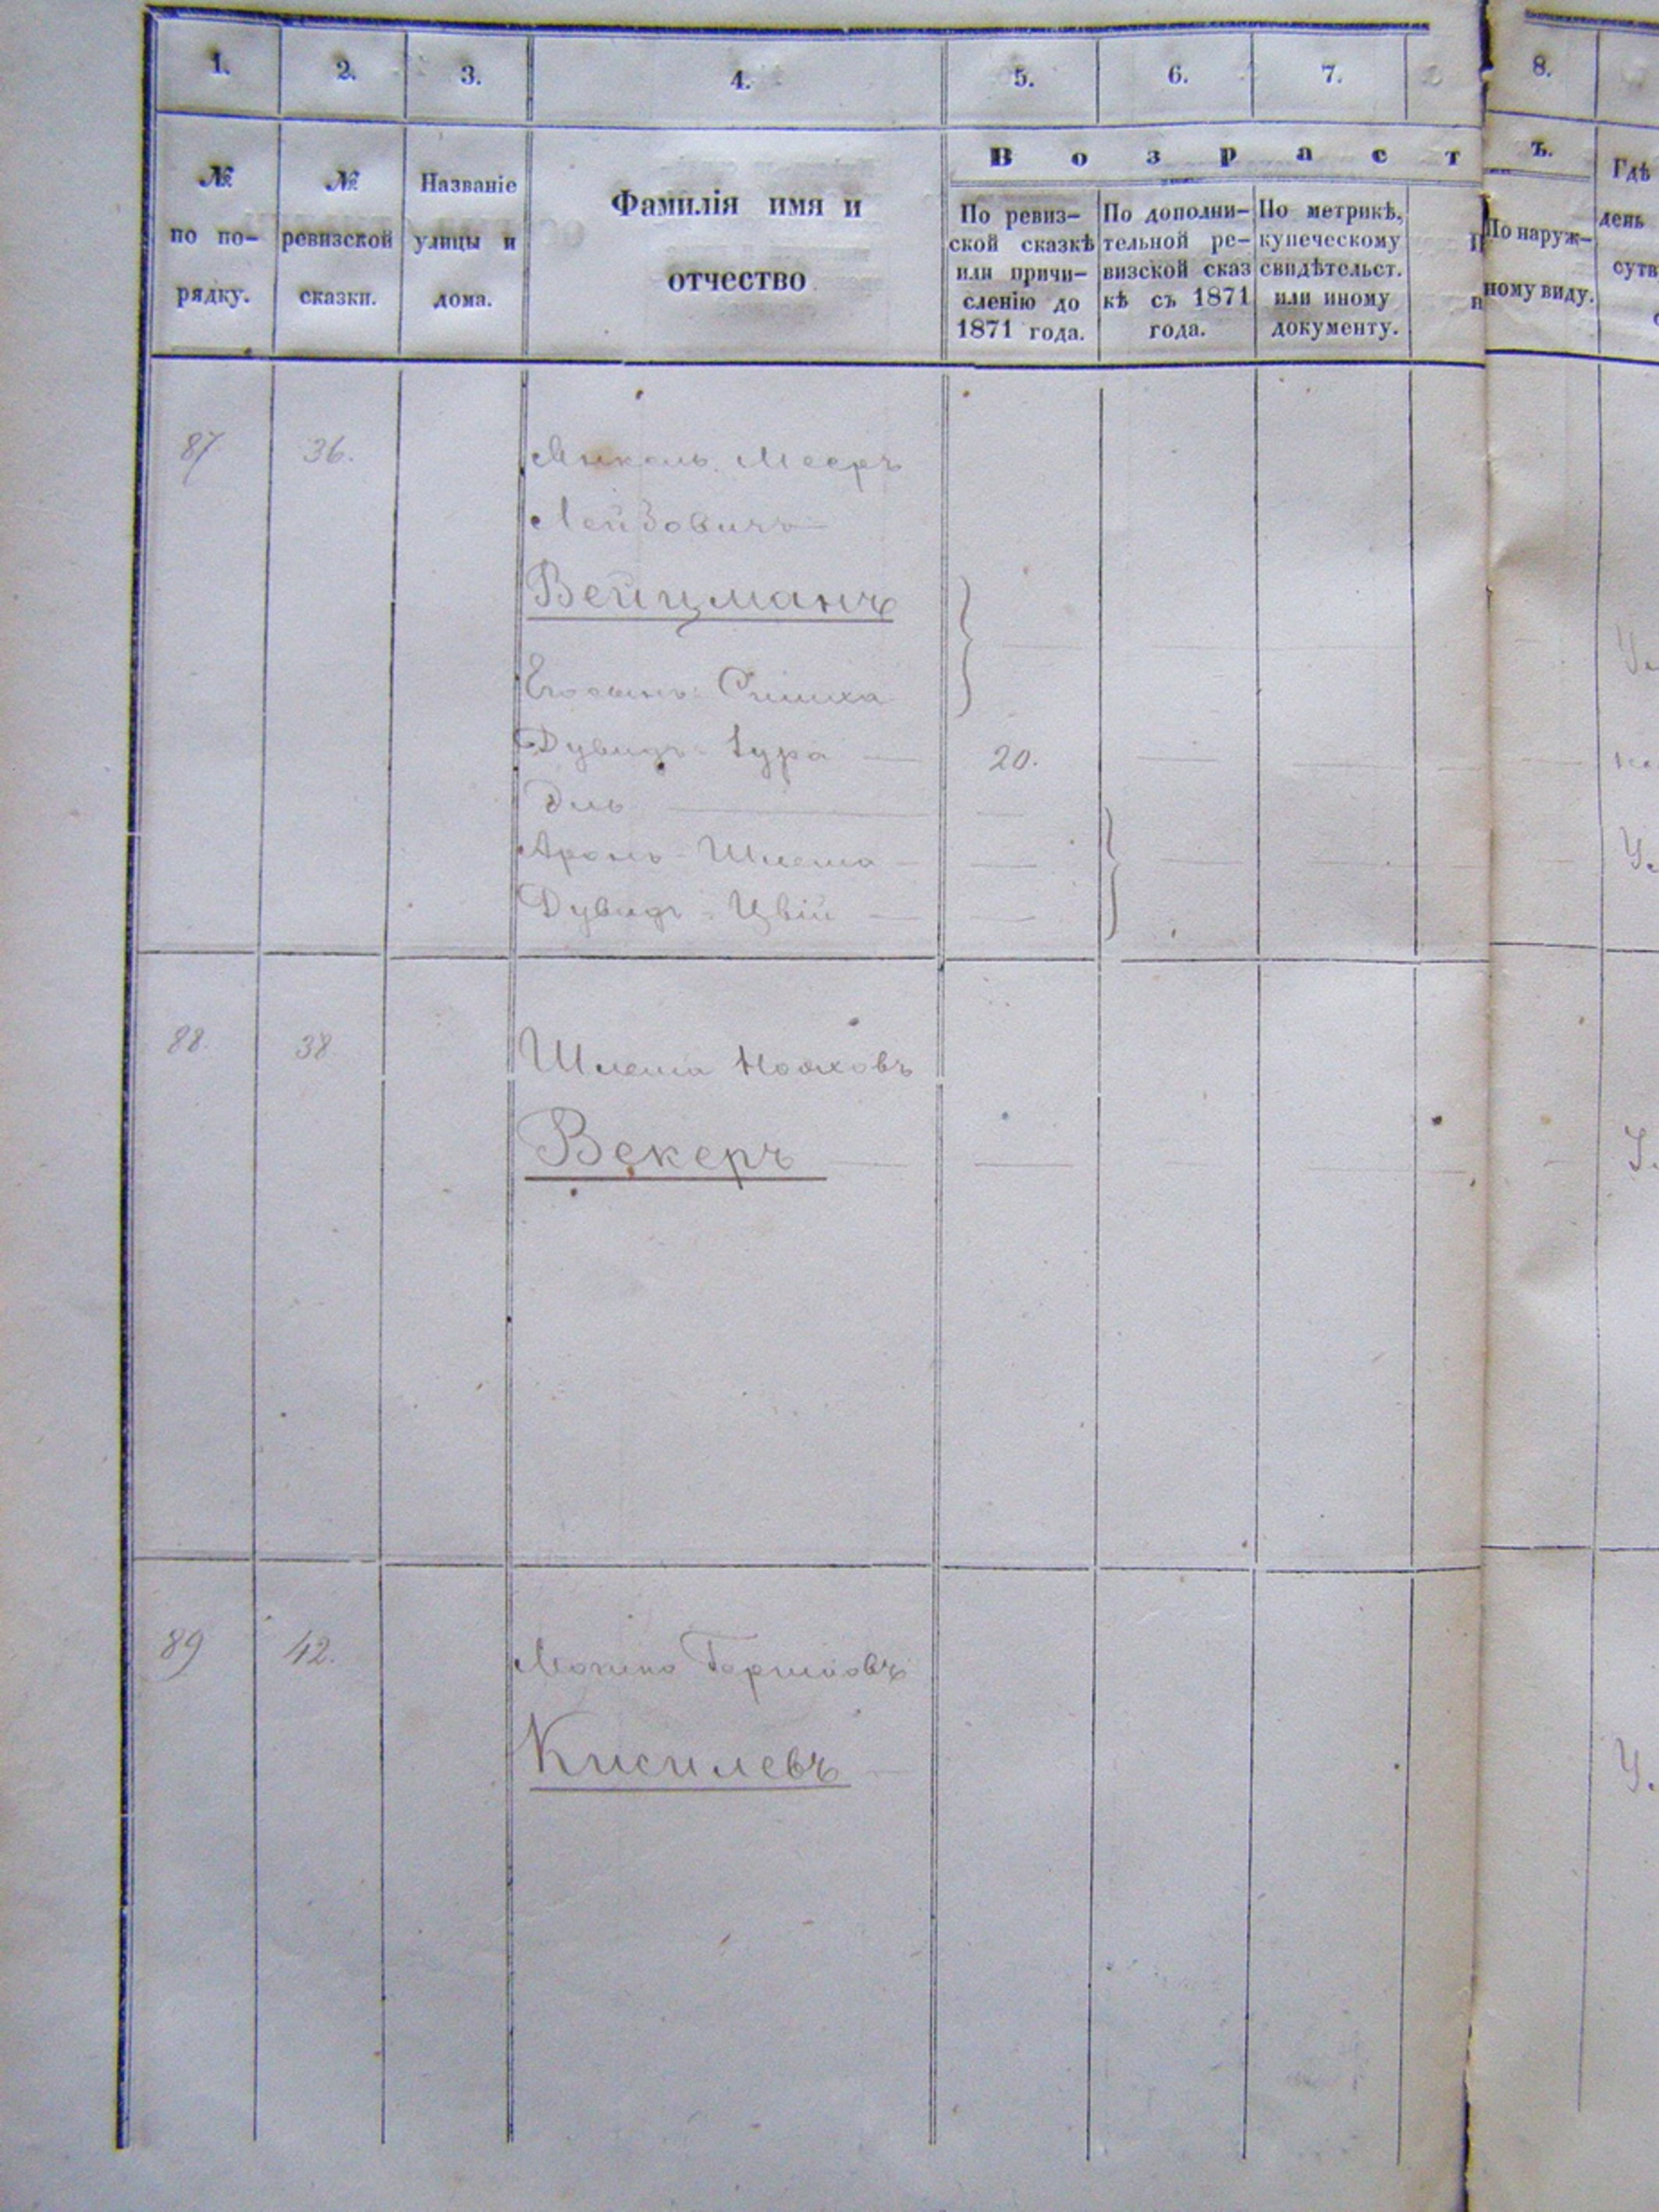 1. 2. 3. 4. 5. 6. 7. 8.
В о з р а с т ъ.
№ по по-рядку.
№ ревизской сказки.
Названіе улицы и дома.
Фамилія имя и
отчество
По ревиз-
ской сказкѣ
или причи-
сленію до
1871 года.
По дополни-
тельной ре-
визской сказ
кѣ съ 1871
года.
По метрикѣ,
купеческому
свидѣтельст.
или иному
документу.
По наруж-
ному виду.
Гдѣ
день
сутв
87 36. Мееръ
Лейзовичъ
Вейцманъ
Его сынъ: Симха
Дувидъ-Сура — 20.
Эль
Аронъ-Шлема
Дувидъ-Цвій
88. 38 Шлема Нооховъ
Векеръ
89 42. Гершковъ
Кисилевъ